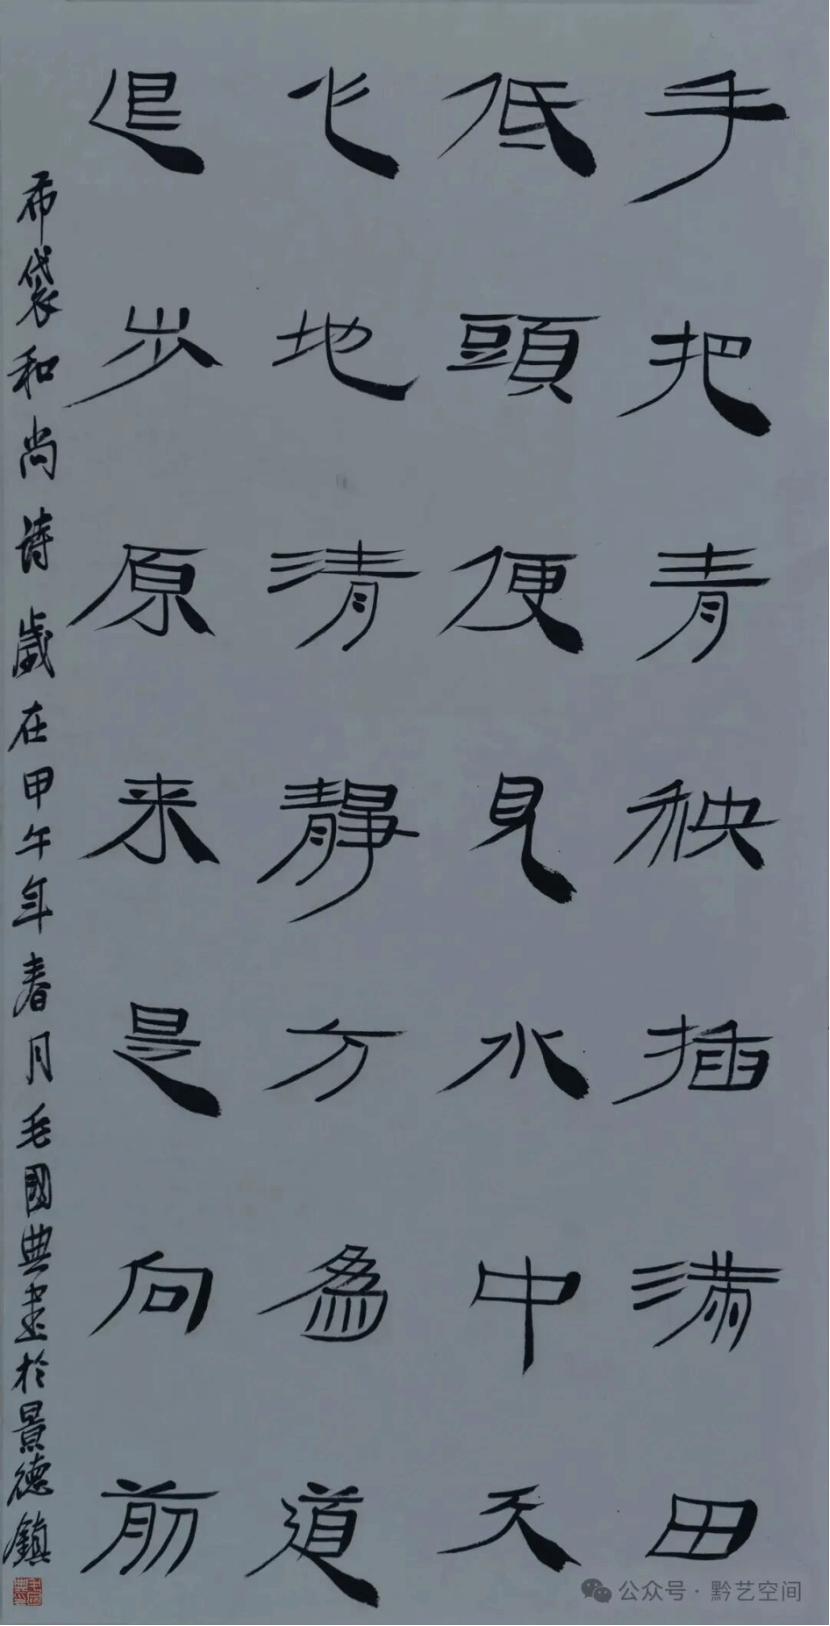 手把青秧插滿田
低頭便見水中天
心地清靜方為道
退步原来是向前
布袋和尚詩歲在甲午年春月毛國典書於景德鎮
公众号·黔艺空间